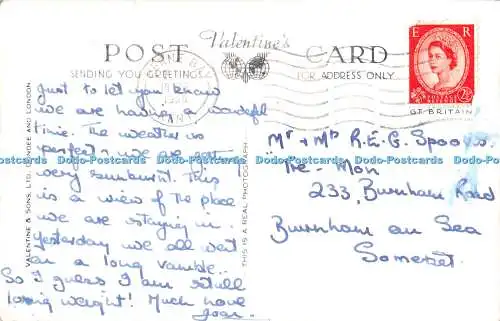 POST Valentine's CARD
SENDING YOU GREETINGS FOR ADDRESS ONLY
E R
POSTAGE REVENUE
2½D
GT BRITAIN
VALENTINE & SONS, LTD., DUNDEE AND LONDON
THIS IS A REAL PHOTOGRAPH
Just to let you know
we are having a wonderful
time. The weather is
perfect & we are all
very sunburnt. This
is a view of the place
we are staying in.
Yesterday we all went
on a long ramble.
So I guess I am still
losing weight! Much love
Joan.
Mr & Mrs R.E.G. Spooner.
Tre-Mon
233, Burnham Road
Burnham on Sea
Somerset.
Data-Postcards Data-Postcards Data-Postcards Data-Postcards Data-Postcards